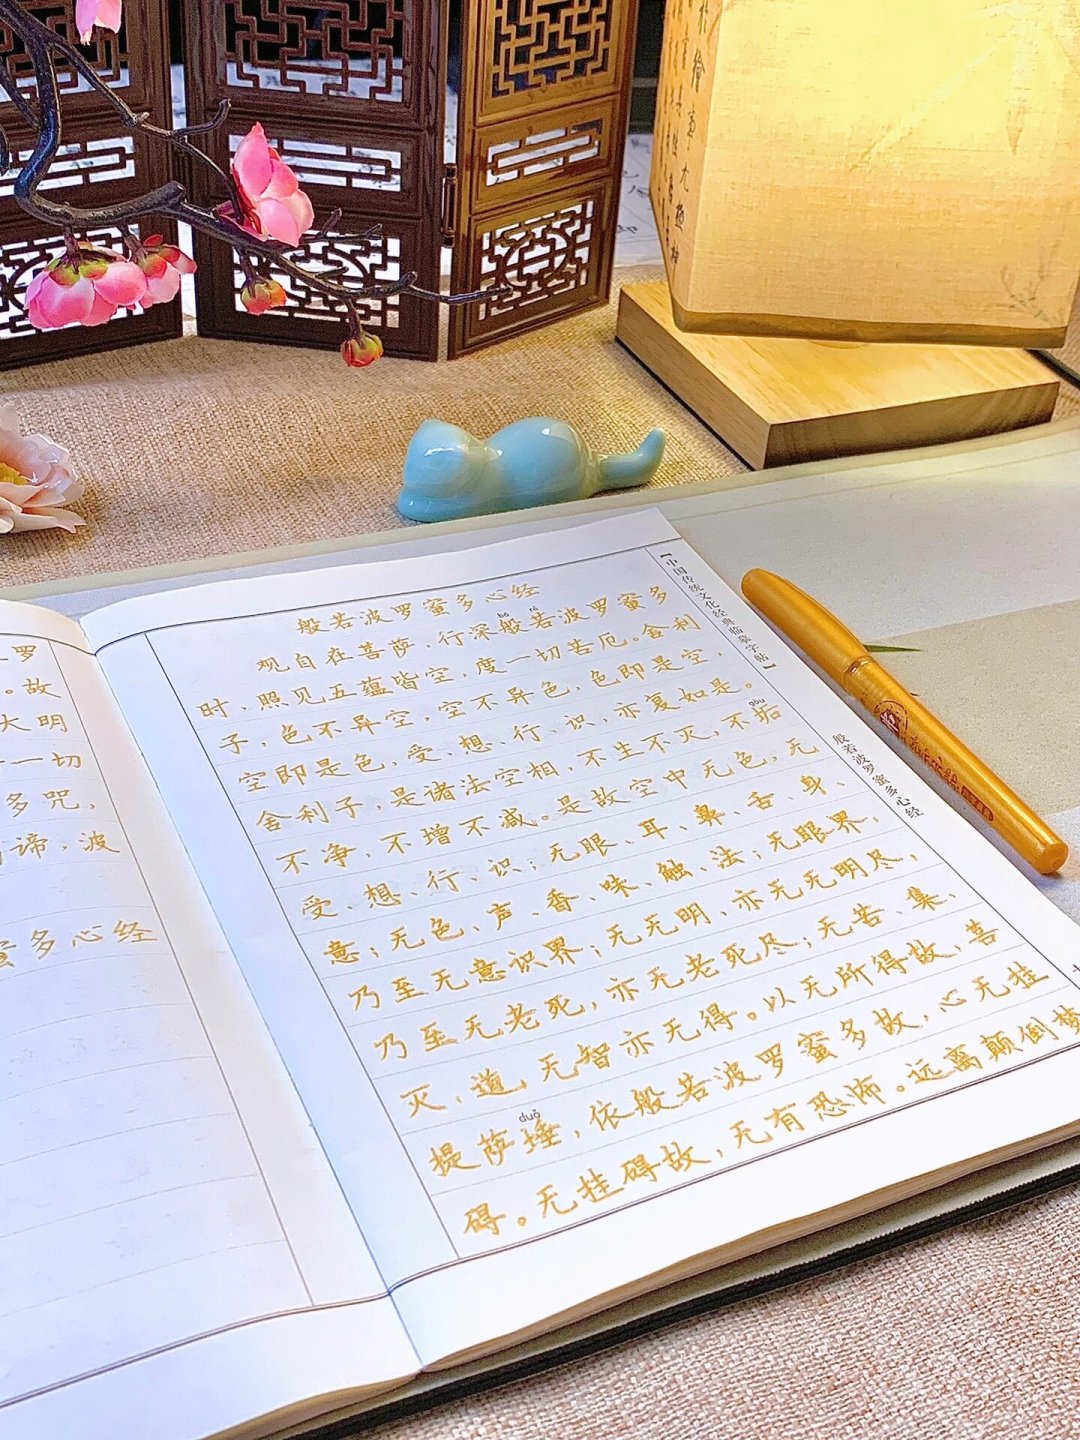 罗
。故
大明
一切
多咒，
谛，波
蜜多心经
般若波罗蜜多心经
bō rě
观自在菩萨，行深般若波罗蜜多
时，照见五蕴皆空，度一切苦厄。舍利
子，色不异空，空不异色，色即是空，
空即是色，受、想、行、识，亦复如是。
gòu
舍利子，是诸法空相，不生不灭，不垢
不净，不增不减。是故空中无色，无
受、想、行、识；无眼、耳、鼻、舌、身、
意；无色、声、香、味、触、法；无眼界，
乃至无意识界；无无明，亦无无明尽，
乃至无老死，亦无老死尽；无苦、集、
灭、道，无智亦无得。以无所得故，菩
duǒ
提萨埵，依般若波罗蜜多故，心无挂
碍。无挂碍故，无有恐怖。远离颠倒梦
【中国传统文化经典临摹字帖】
般若波罗蜜多心经